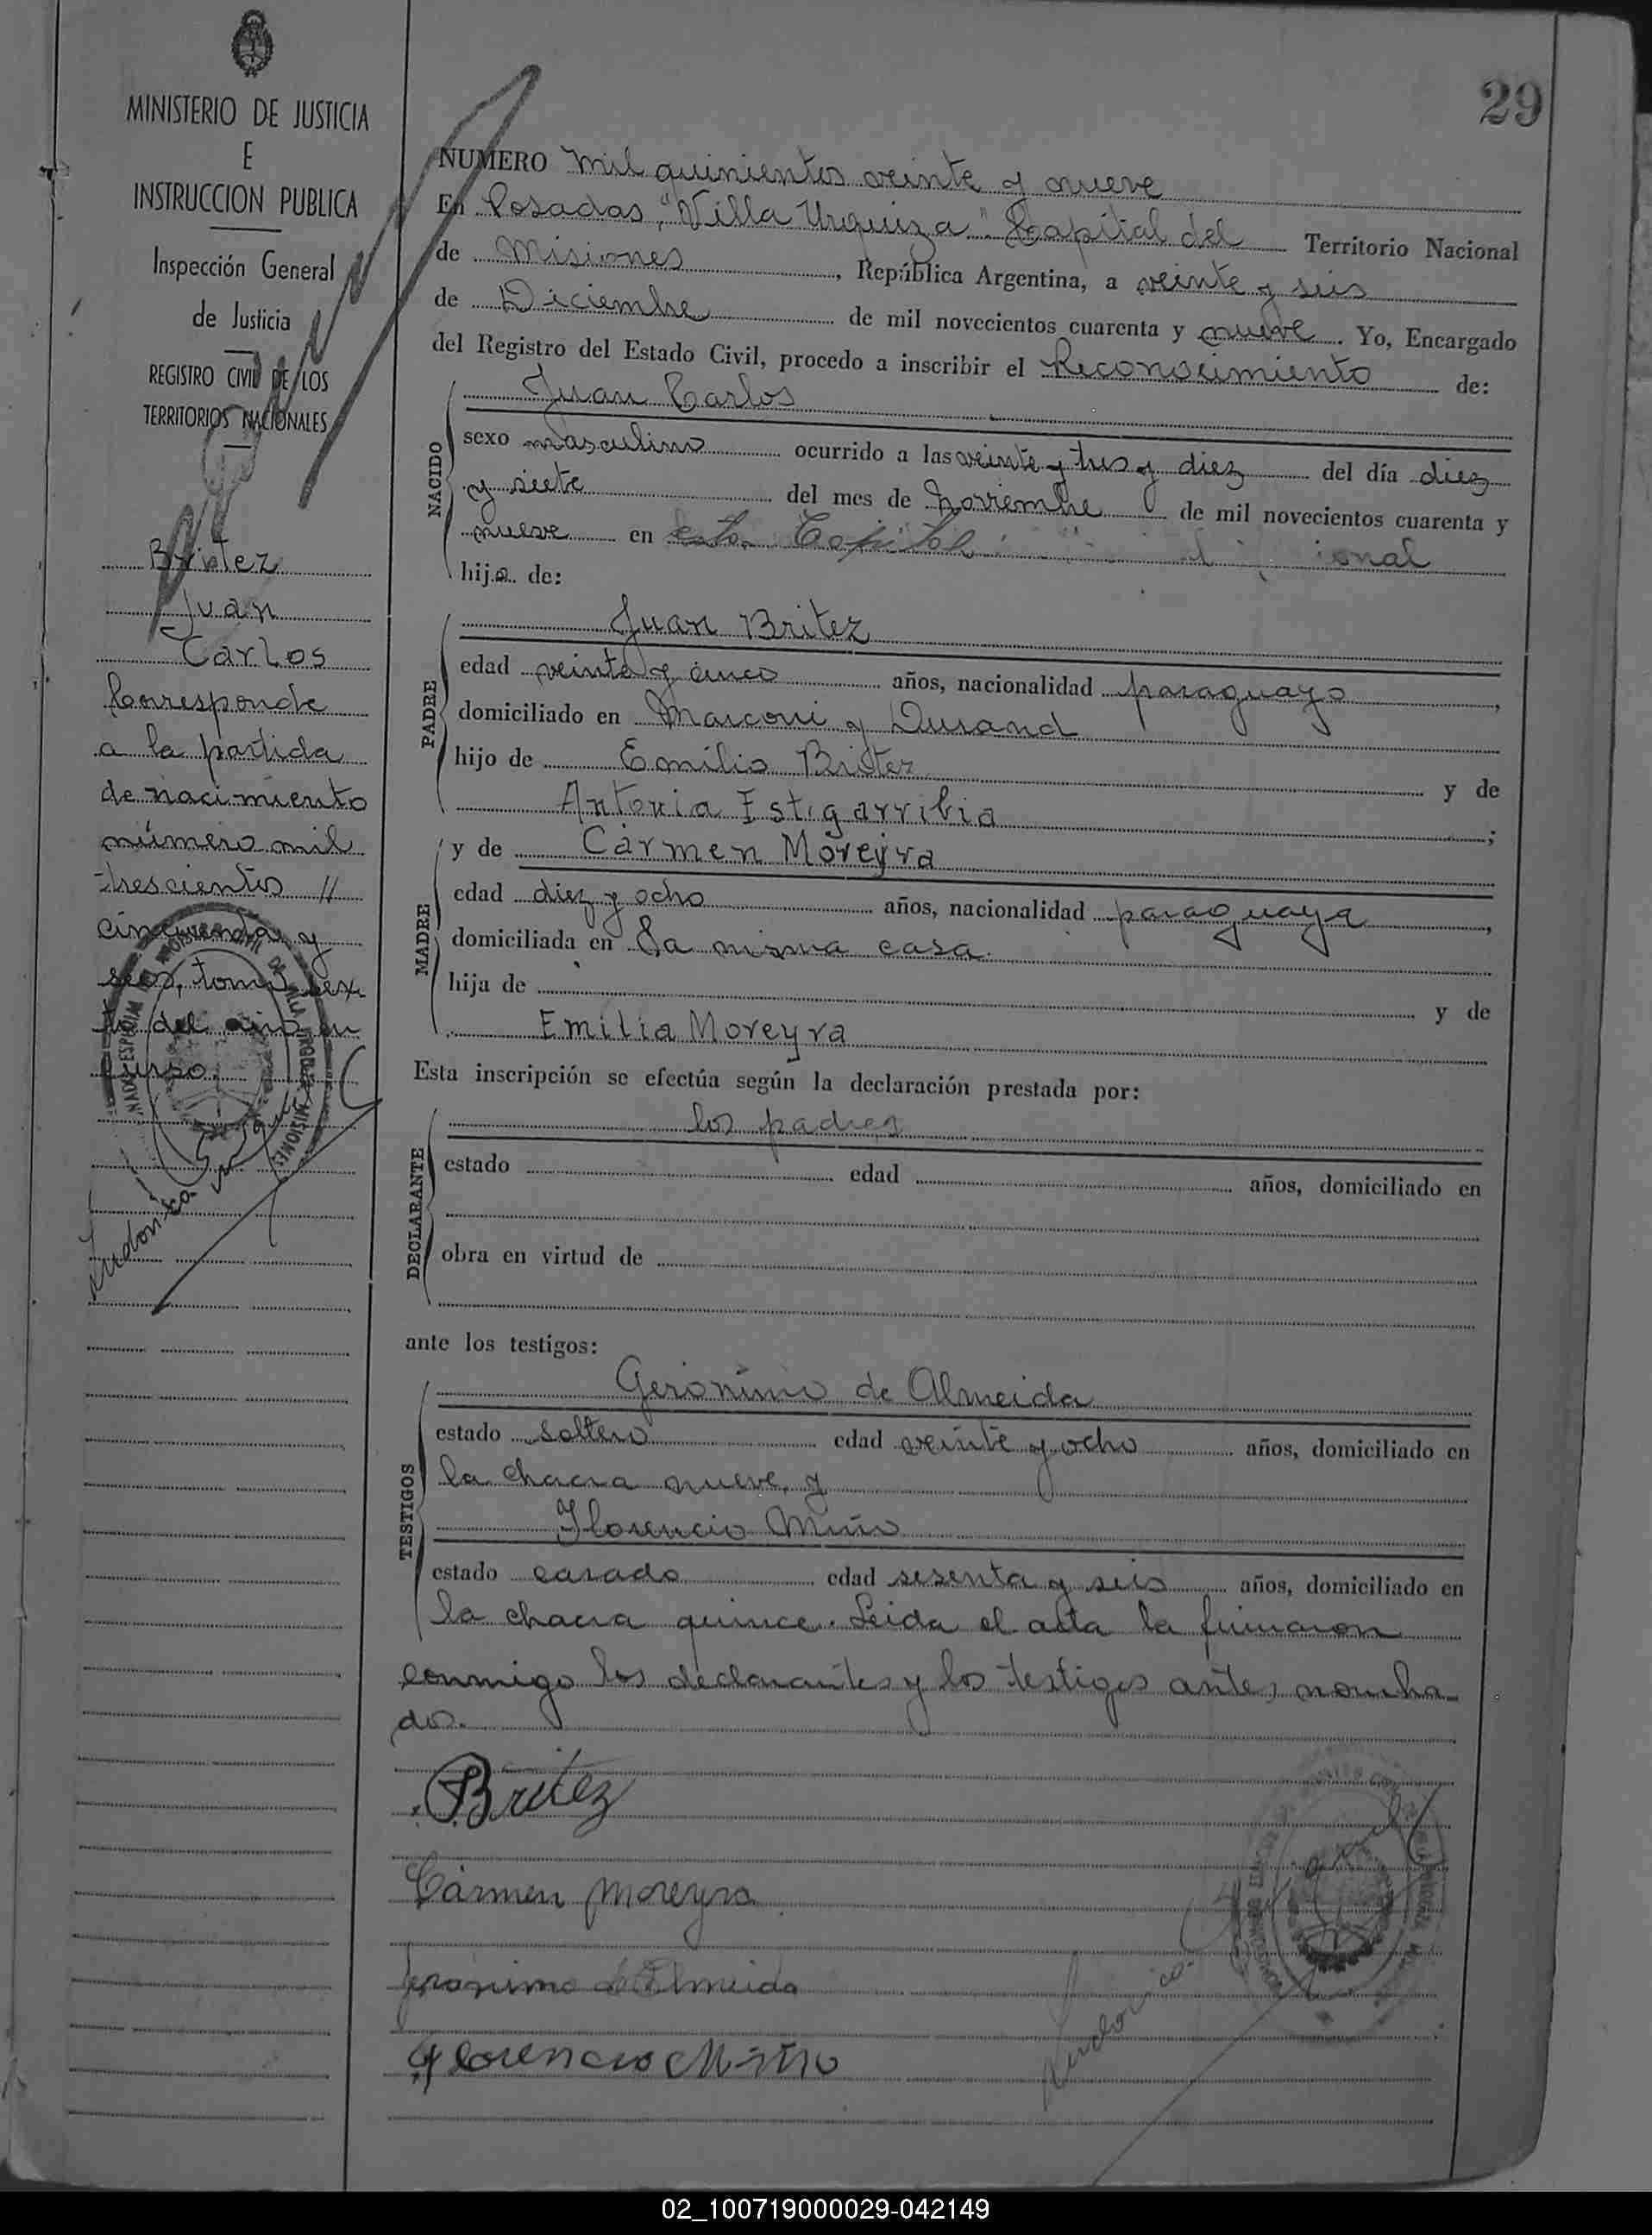 29
MINISTERIO DE JUSTICIA
E
INSTRUCCION PUBLICA
Inspección General
de Justicia
REGISTRO CIVIL DE LOS
TERRITORIOS NACIONALES
Britez
Juan
Carlos
Corresponde
a la partida
de nacimiento
número mil
trescientos //
cincuenta y
seis, tomo sex
to del año en
curso.
NUMERO mil quinientos veinte y nueve
En Posadas, "Villa Urquiza". Capital del Territorio Nacional
de Misiones, República Argentina, a veinte y seis
de Diciembre de mil novecientos cuarenta y nueve. Yo, Encargado
del Registro del Estado Civil, procedo a inscribir el Reconocimiento de:
NACIDO
Juan Carlos
sexo masculino ocurrido a las veinte y tres y diez del día diez
y siete del mes de Noviembre de mil novecientos cuarenta y
nueve en esta Capital
hijo de:
PADRE
Juan Britez
edad veinte y cinco años, nacionalidad paraguayo,
domiciliado en Marconi y Durand
hijo de Emilio Britez y de
Antonia Estigarribia;
MADRE
y de Cármen Moreyra
edad diez y ocho años, nacionalidad paraguaya,
domiciliada en La misma casa.
hija de y de
Emilia Moreyra
Esta inscripción se efectúa según la declaración prestada por:
DECLARANTE
los padres
estado edad años, domiciliado en
obra en virtud de
ante los testigos:
TESTIGOS
Gerónimo de Almeida
estado soltero edad veinte y ocho años, domiciliado en
la chacra nueve, y
Florencio Miño
estado casado edad sesenta y seis años, domiciliado en
la chacra quince. Leida el acta la firmaron
conmigo los declarantes y los testigos antes nombra-
dos.
Britez
Cármen Moreyra
Jeronimo de Almeida
Florencio Miño
02_100719000029-042149